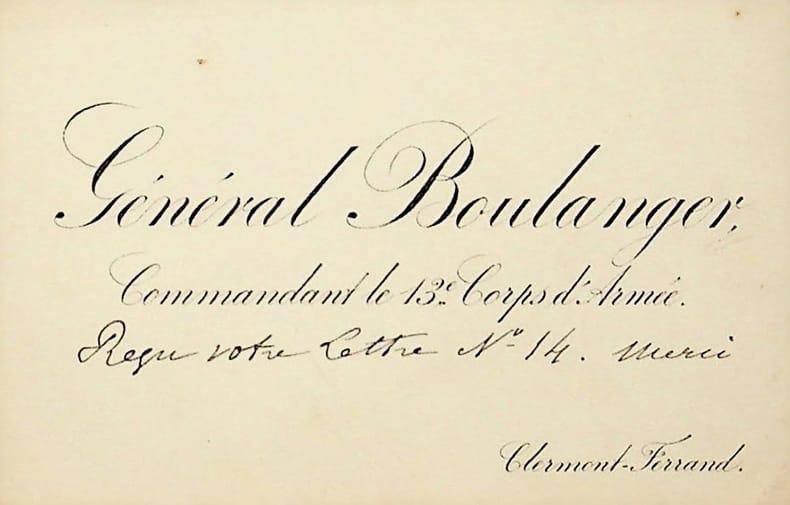 Général Boulanger,
Commandant le 13e Corps d'Armée.
Reçu votre Lettre No 14. Merci
Clermont-Ferrand.